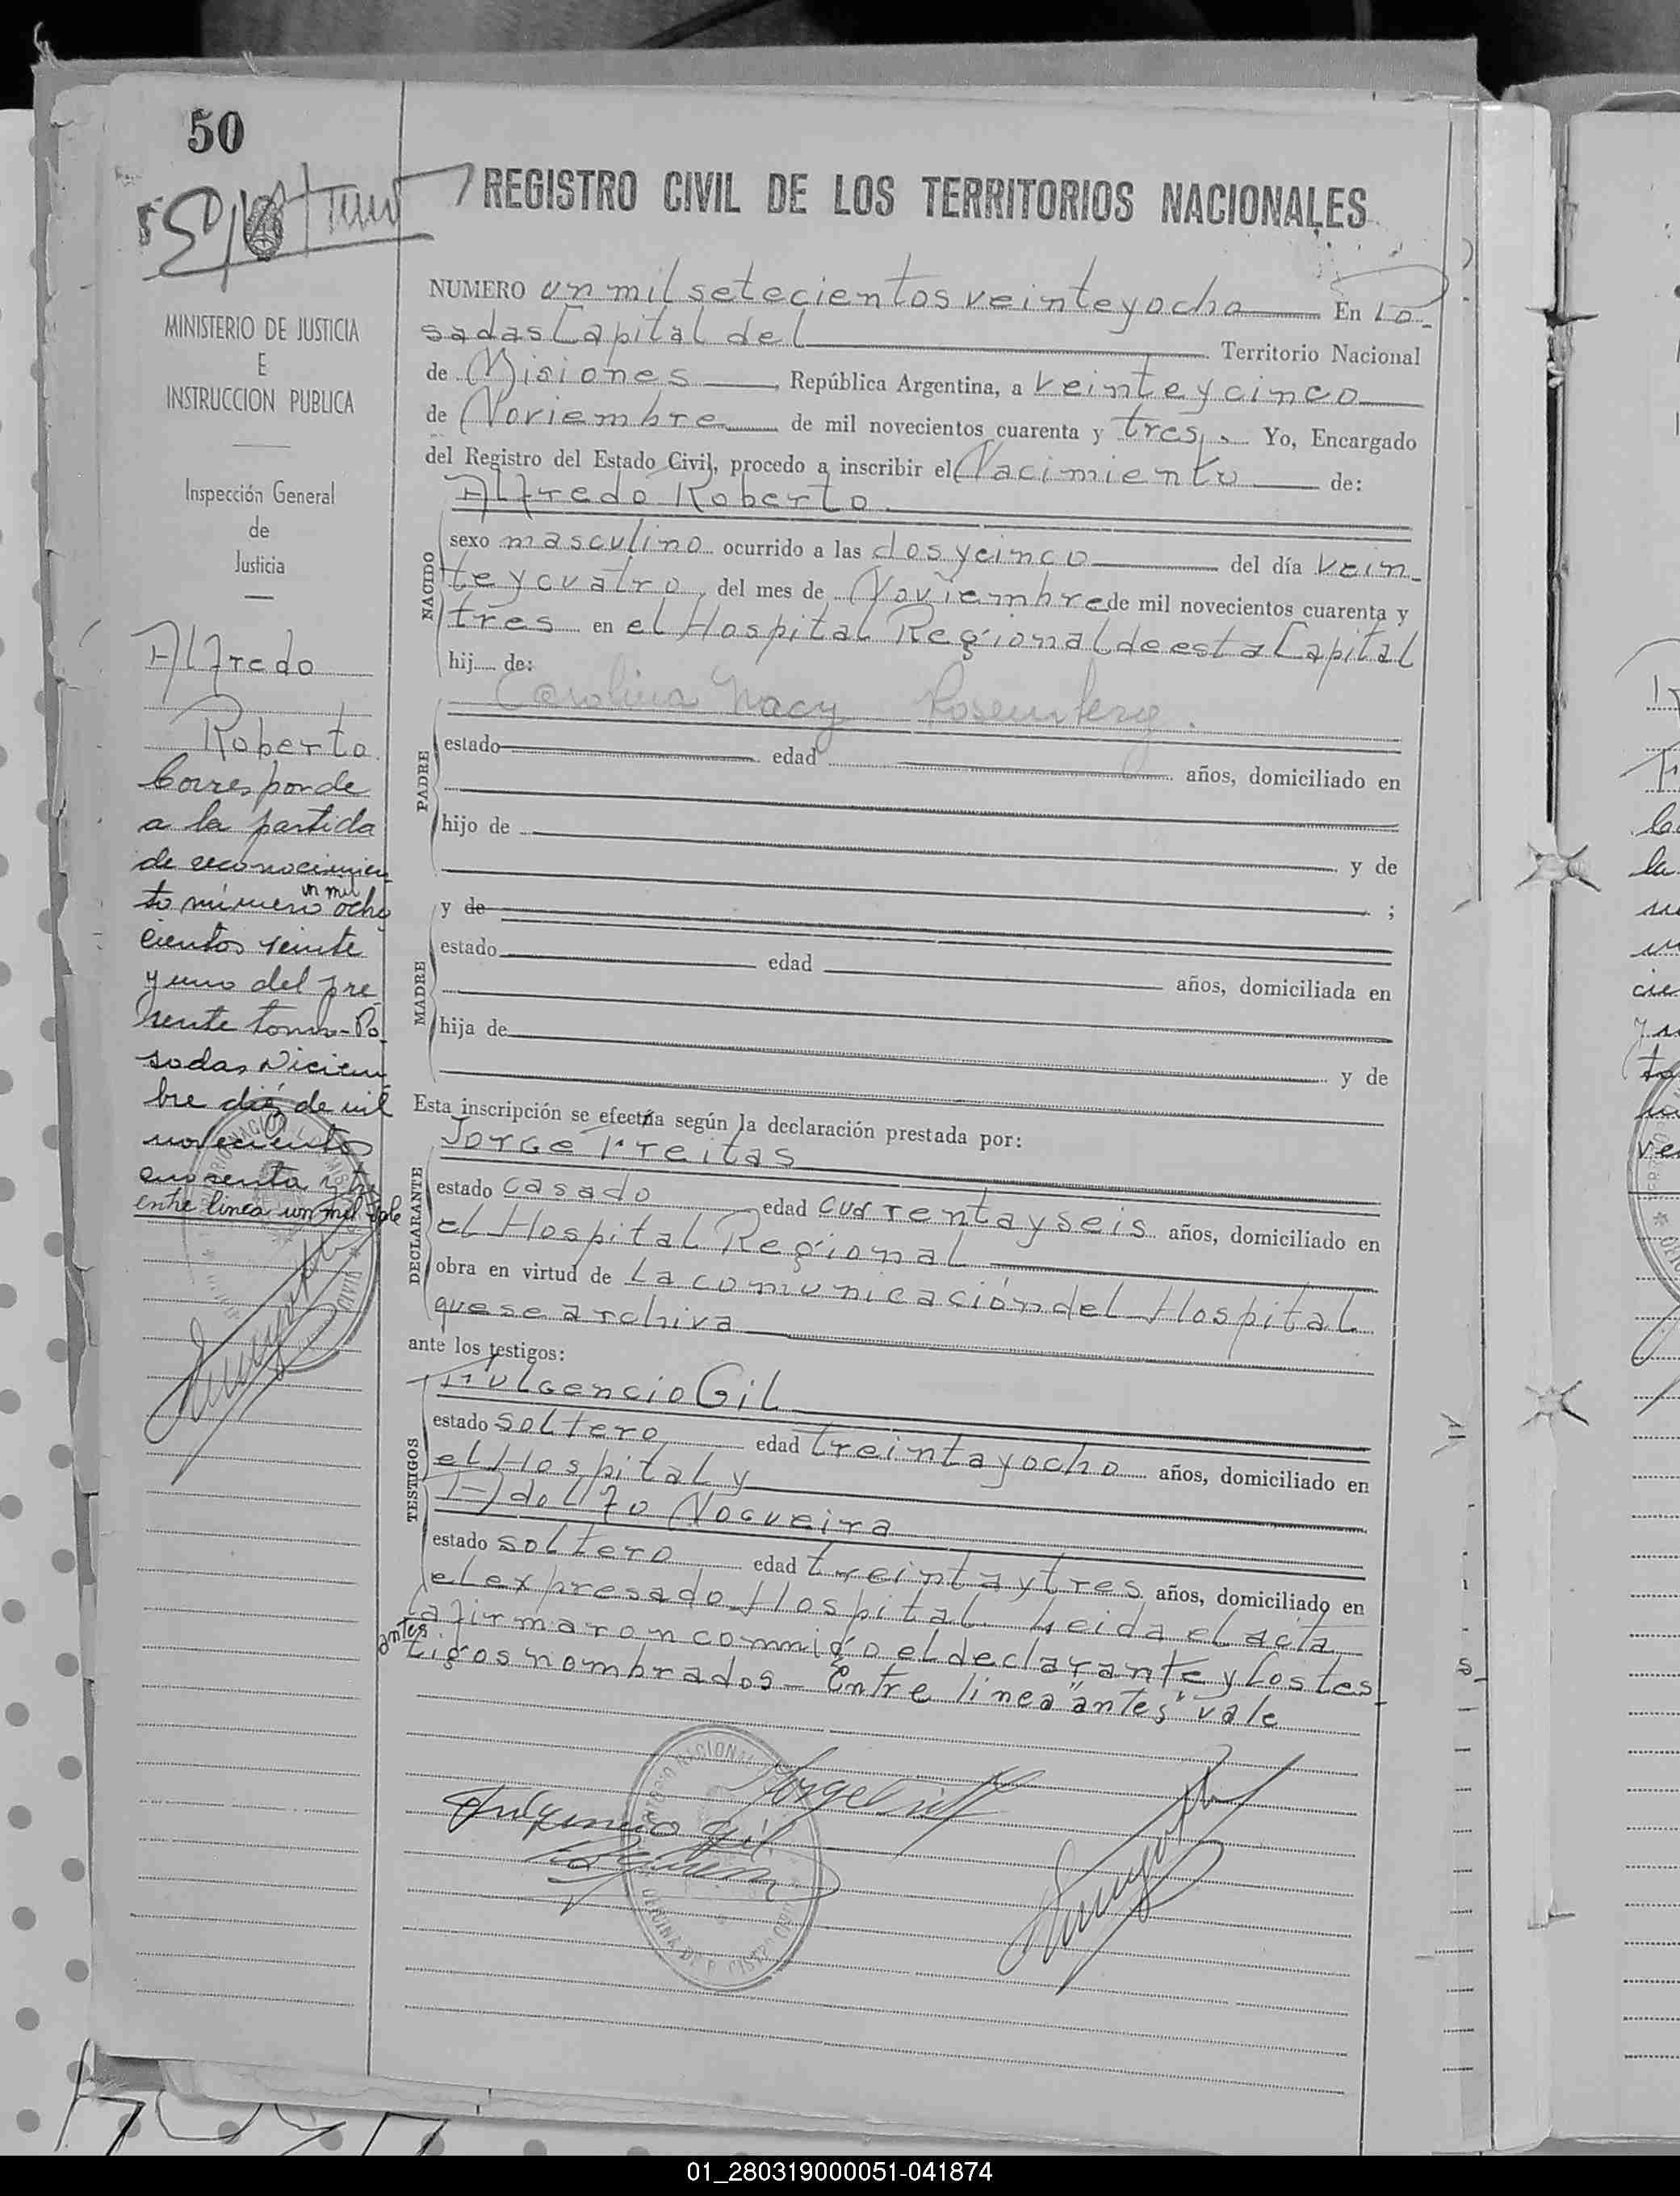 50
REGISTRO CIVIL DE LOS TERRITORIOS NACIONALES
MINISTERIO DE JUSTICIA
E
INSTRUCCION PUBLICA
Inspección General
de
Justicia
Alfredo
Roberto
Corresponde
a la partida
de reconocimien
to número un mil ocho
cientos veinte
y uno del pre
sente tomo - Po
sadas Diciem
bre diéz de mil
novecientos
cuarenta y tres
entre linea un mil vale
NUMERO un mil setecientos veinte y ocho En Po-
sadas Capital del Territorio Nacional
de Misiones República Argentina, a veinte y cinco
de Noviembre de mil novecientos cuarenta y tres. Yo, Encargado
del Registro del Estado Civil, procedo a inscribir el Nacimiento de:
Alfredo Roberto
NACIDO
sexo masculino ocurrido a las dos y cinco del día vein-
te y cuatro del mes de Noviembre de mil novecientos cuarenta y
tres en el Hospital Regional de esta Capital
hij de:
Carolina Nacy Rosemberg.
PADRE
estado edad años, domiciliado en
hijo de
y de
y de ;
MADRE
estado edad años, domiciliada en
hija de
y de
Esta inscripción se efectúa según la declaración prestada por:
Jorge Freitas
DECLARANTE
estado casado edad cuarenta y seis años, domiciliado en
el Hospital Regional
obra en virtud de la comunicación del Hospital
que se archiva
ante los testigos:
Fulgencio Gil
TESTIGOS
estado soltero edad treinta y ocho años, domiciliado en
el Hospital y
Adolfo Nogueira
estado soltero edad treinta y tres años, domiciliado en
el expresado Hospital. Leida el acta
la firmaron conmigo el declarante y los tes-
antes
tigos nombrados - Entre linea "antes" vale
Fulgencio Gil
01_280319000051-041874